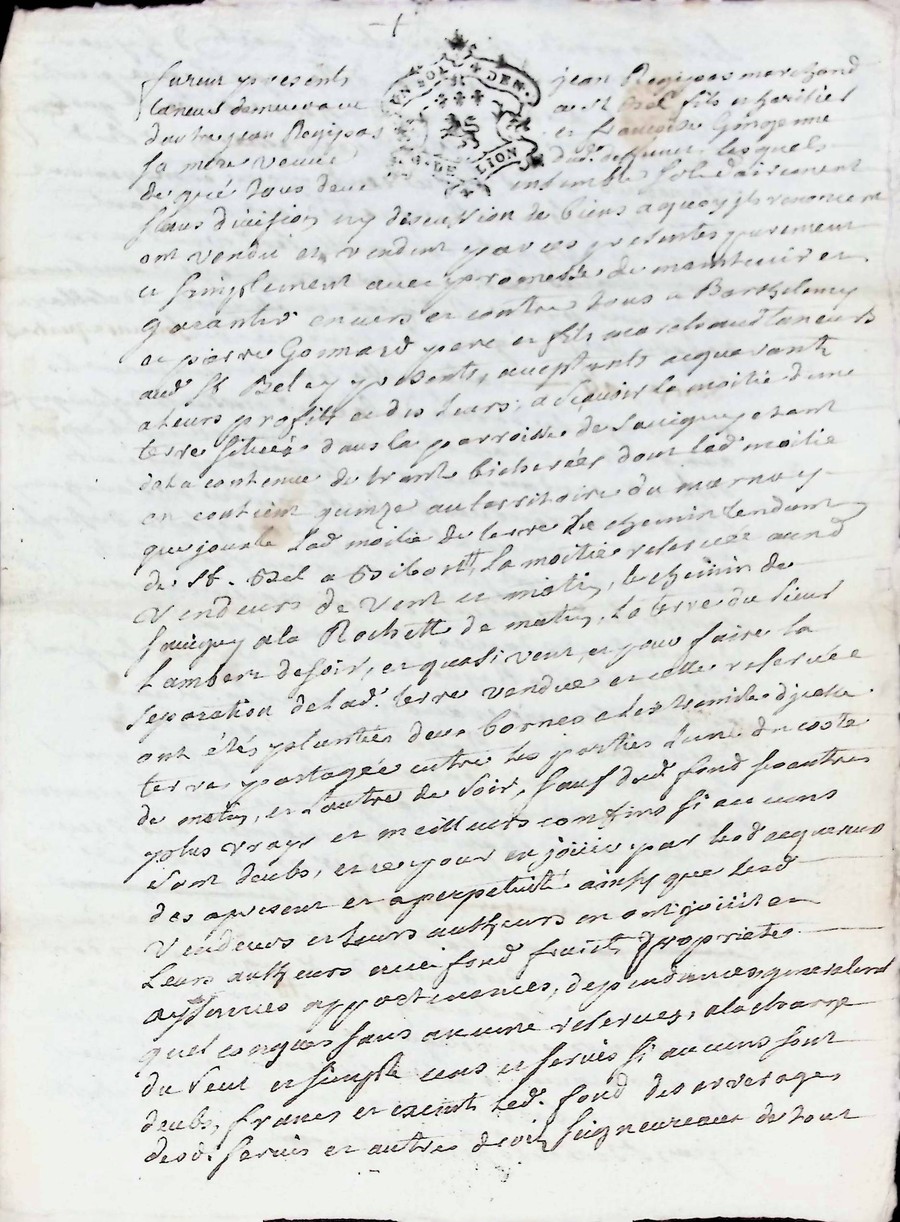 furent presents jean Regipas marchand
taneur demeurant a St Bel fils et heritier
d'autre jean Regipas et francoise Giroyenne
sa mere veuve dud. deffunt, lesquels
de gré tous deux ensemble solidairement
UN SOL DEN.
G. DE LION
sans division ny discution de biens a quoy ils renoncent
ont vendu et vendent par ces presentes purement
et simplement avec promesse de maintenir et
garantir envers et contre tous a Barthelemy
et pierre Gonnard pere et fils marchands taneurs
aud. St. Bel y presents, acceptants acquerants
a leurs profits et des leurs, a scavoir la moitié d'une
terre située dans la parroisse de Savigny etant
de la contenue de trante bicherées dont lad. moitié
en contient quinze au territoire du marnay
que jouxte lad. moitié de terre le chemin tendant
de St. Bel a Bibost, la moitié reservée auxd.
Vendeurs de vent et matin, le chemin de
Savigny a la Rochette de matin, la terre du sieur
Lambert de soir, et quasi vent, et pour faire la
separation de lad. terre vendue et celle reservée
ont étés plantées deux bornes a
terre partagée entre les parties l'une du coste
de matin, et l'autre de soir, sauf dud. fond ses autres
plus vrays et meilleurs confins si aucuns
sont deubs, et ce pour en jouir par lesd. acquereurs
des apresent et a perpetuité ainsy que lesd.
Vendeurs et leurs autheurs en ont jouit et
leurs autheurs avec fond, fruits, proprietes
aysances appartenances, dependances generalement
quelconques sans aucune reserves, a la charge
du seul et simple cens et servis si aucuns sont
deubs, francs et exempt led. fond des arrerages
desd. servis et autres droits seigneuriaux de tout